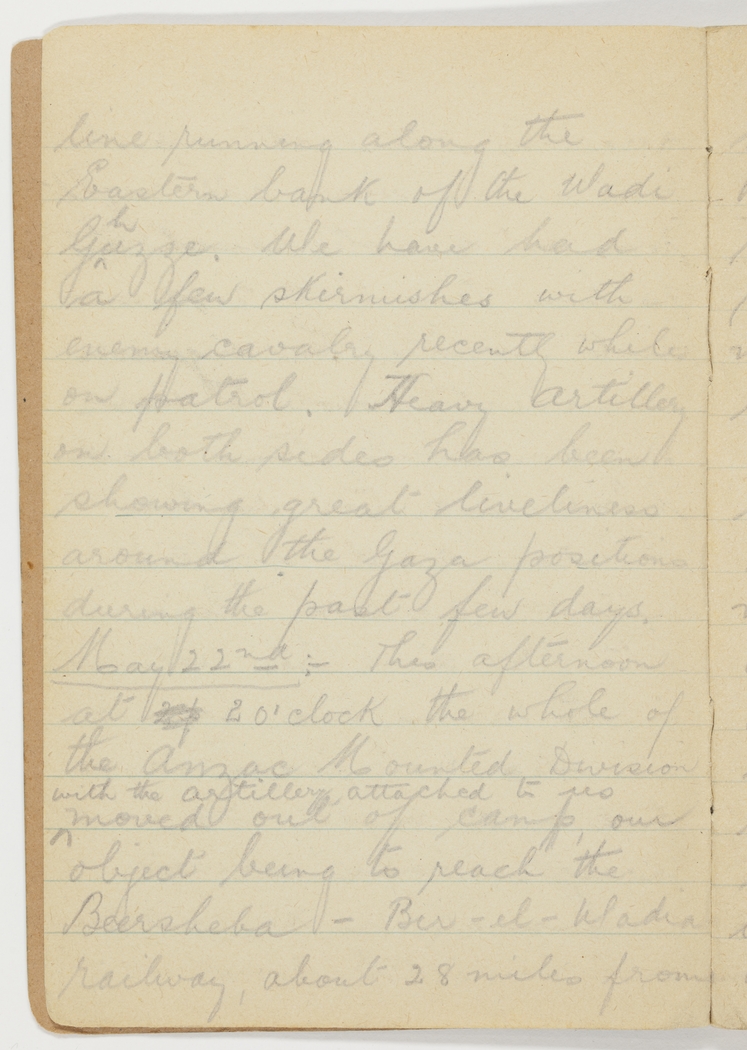 line running along the
Eastern bank of the Wadi
Ghuzze. We have had
a few skirmishes with
enemy cavalry recently while
on patrol. Heavy artillery
on both sides has been
showing great liveliness
around the Gaza positions
during the past few days.
May 22nd :- This afternoon
at 2 o'clock the whole of
the Anzac Mounted Division
with the artillery attached to us
moved out of camp, our
object being to reach the
Beersheba - Bir-el-
railway, about 28 miles from